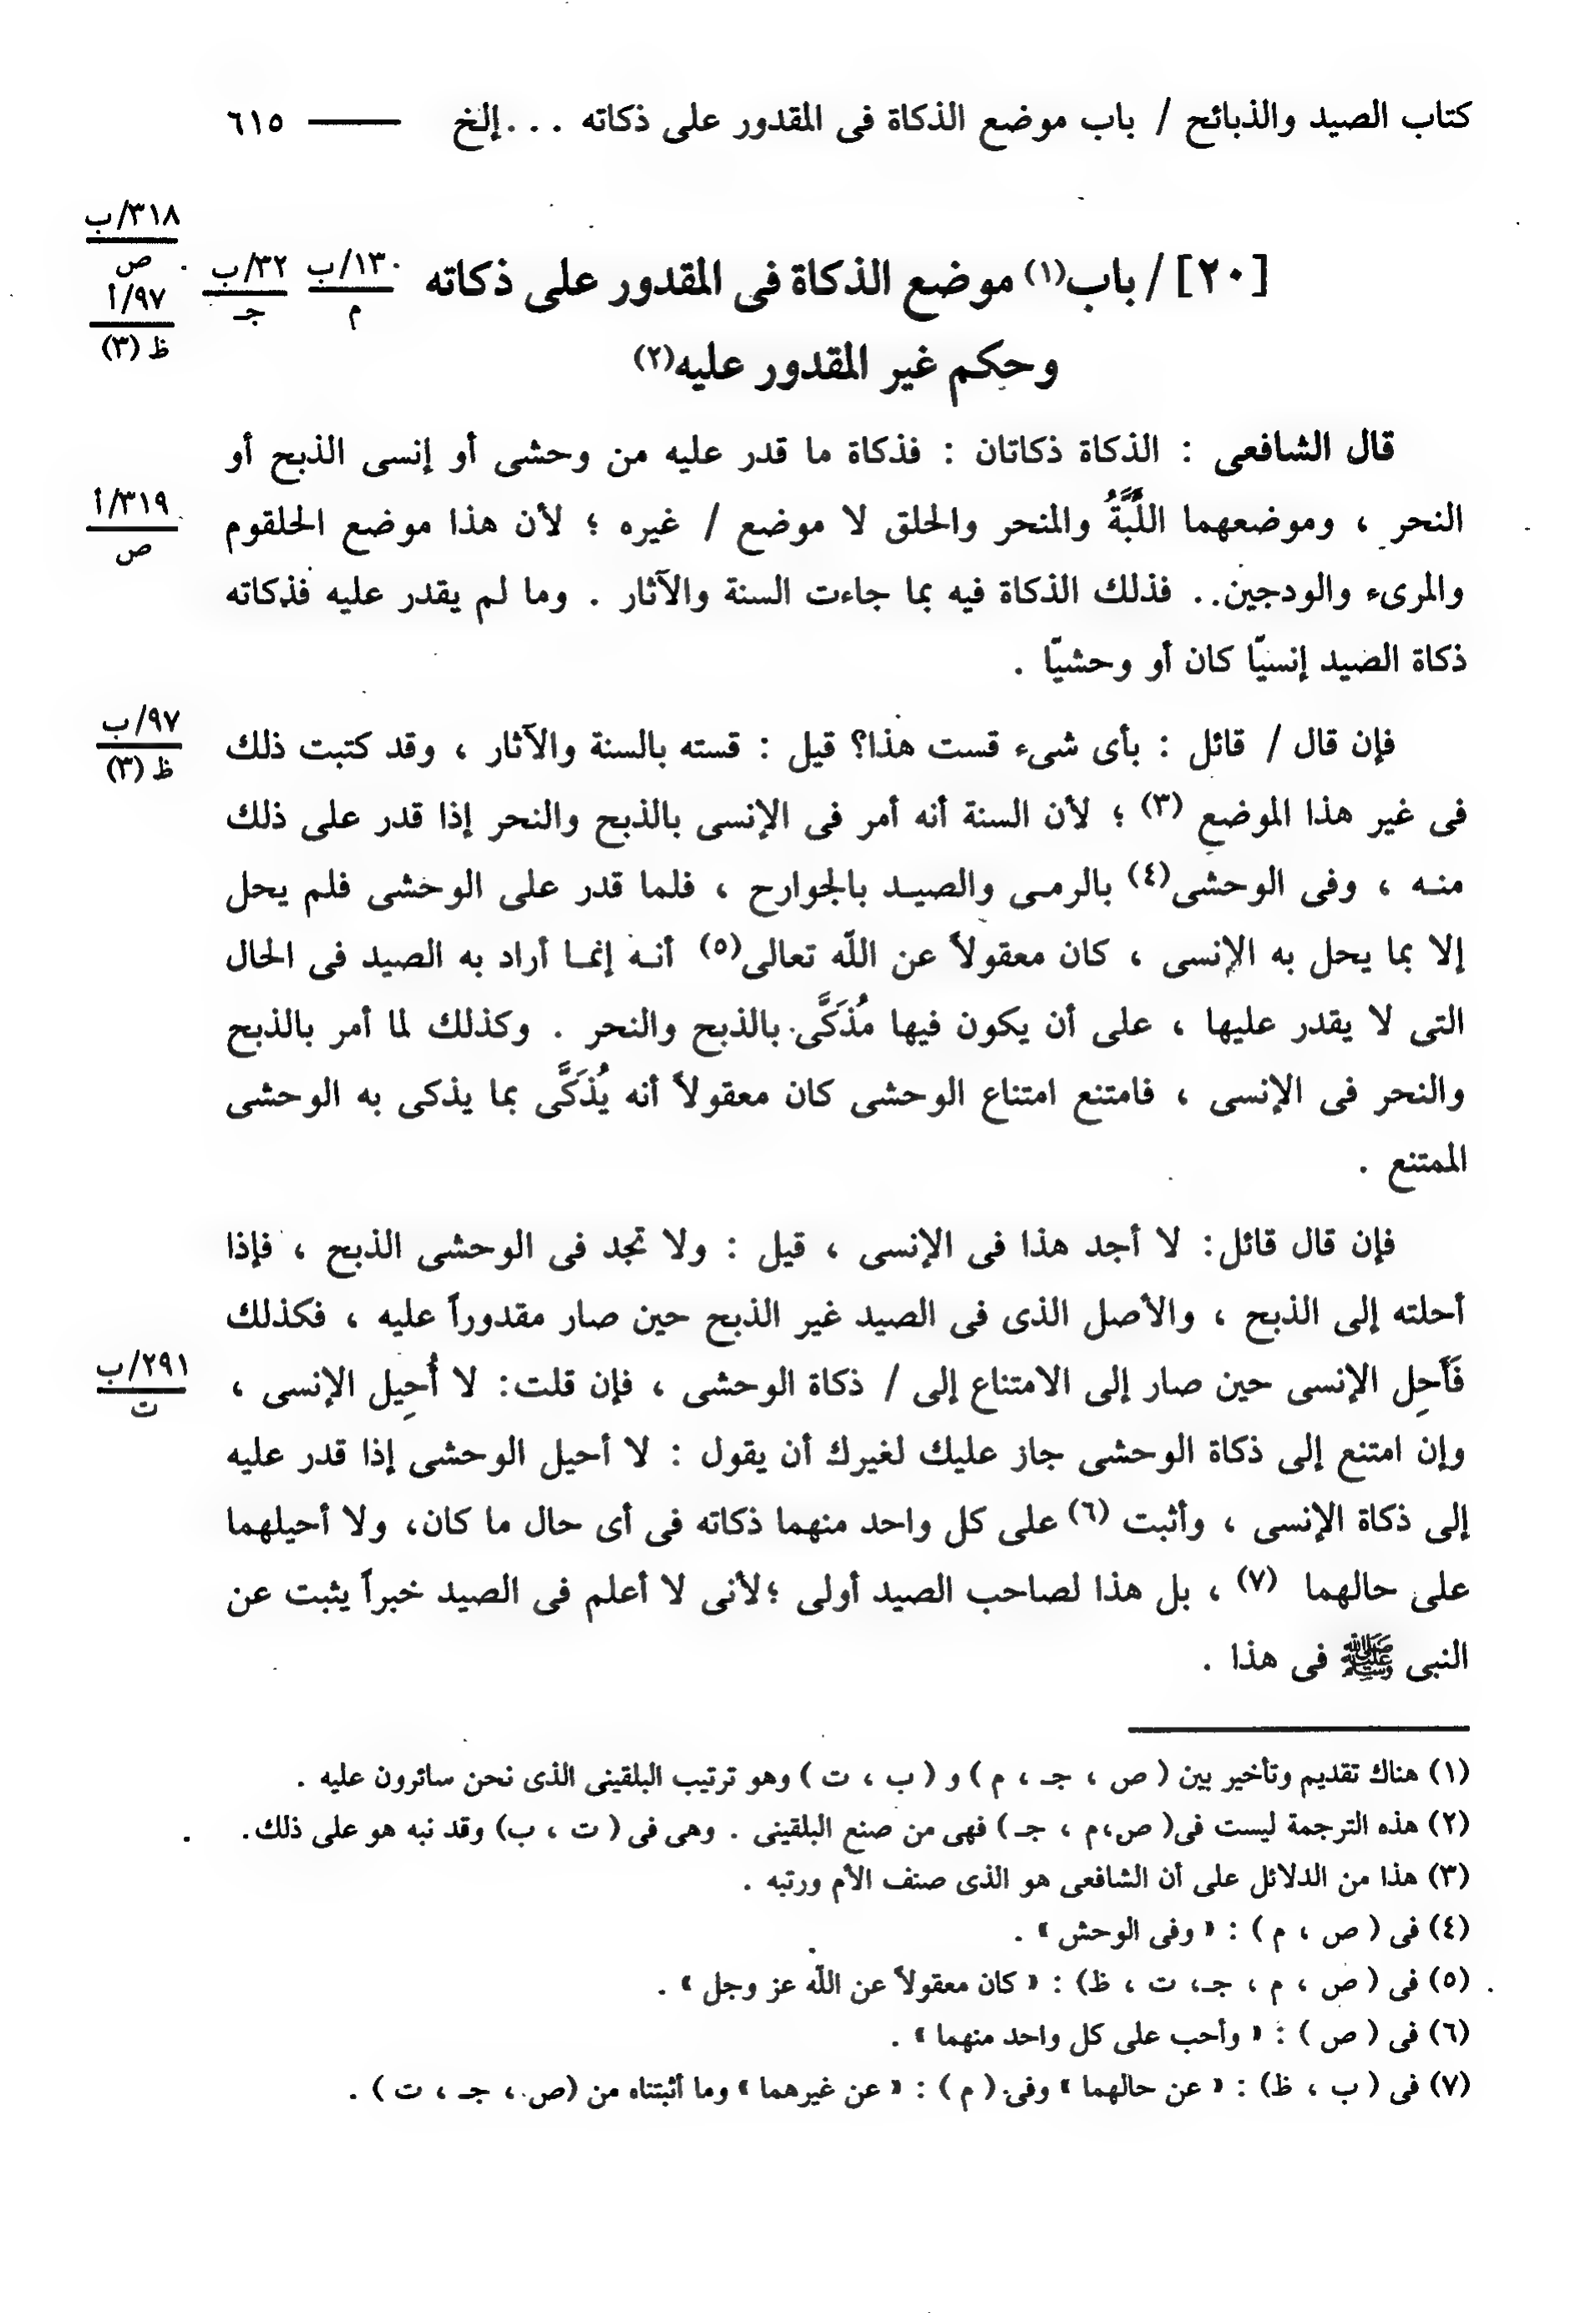 كتاب الصيد والذبائح / باب موضع الذكاة فى المقدور على ذكاته . . . إلخ ——— ٦١٥
٣١٨/ب
ص
٩٧/أ
ظ (٣)
[٢٠] / باب(١) موضع الذكاة فى المقدور على ذكاته
١٣٠/ب
م
٣٢/ب
جـ
وحكم غير المقدور عليه(٢)
قال الشافعى : الذكاة ذكاتان : فذكاة ما قدر عليه من وحشى أو إنسى الذبح أو
النحر ، وموضعهما اللَّبَّةُ والمنحر والحلق لا موضع / غيره ؛ لأن هذا موضع الحلقوم
٣١٩/أ
ص
والمرىء والودجين . . فذلك الذكاة فيه بما جاءت السنة والآثار . وما لم يقدر عليه فذكاته
ذكاة الصيد إنسيّا كان أو وحشيّا .
فإن قال / قائل : بأى شىء قست هذا؟ قيل : قسته بالسنة والآثار ، وقد كتبت ذلك
٩٧/ب
ظ (٣)
فى غير هذا الموضع (٣) ؛ لأن السنة أنه أمر فى الإنسى بالذبح والنحر إذا قدر على ذلك
منـه ، وفى الوحشى(٤) بالرمـى والصيـد بالجوارح ، فلما قدر على الوحشى فلم يحل
إلا بما يحل به الإنسى ، كان معقولاً عن اللّه تعالى(٥) أنـه إنمـا أراد به الصيد فى الحال
التى لا يقدر عليها ، على أن يكون فيها مُذَكًّى بالذبح والنحر . وكذلك لما أمر بالذبح
والنحر فى الإنسى ، فامتنع امتناع الوحشى كان معقولاً أنه يُذَكَّى بما يذكى به الوحشى
الممتنع .
فإن قال قائل: لا أجد هذا فى الإنسى ، قيل : ولا تجد فى الوحشى الذبح ، فإذا
أحلته إلى الذبح ، والأصل الذى فى الصيد غير الذبح حين صار مقدوراً عليه ، فكذلك
فَأَحِل الإنسى حين صار إلى الامتناع إلى / ذكاة الوحشى ، فإن قلت: لا أُحِيل الإنسى ،
٢٩١/ب
ت
وإن امتنع إلى ذكاة الوحشى جاز عليك لغيرك أن يقول : لا أحيل الوحشى إذا قدر عليه
إلى ذكاة الإنسى ، وأثبت (٦) على كل واحد منهما ذكاته فى أى حال ما كان، ولا أحيلهما
على حالهما (٧) ، بل هذا لصاحب الصيد أولى ؛لأنى لا أعلم فى الصيد خبراً يثبت عن
النبى ﷺ فى هذا .
(١) هناك تقديم وتأخير بين ( ص ، جـ ، م ) و ( ب ، ت ) وهو ترتيب البلقينى الذى نحن سائرون عليه .
(٢) هذه الترجمة ليست فى( ص،م ، جـ ) فهى من صنع البلقينى . وهى فى ( ت ، ب) وقد نبه هو على ذلك.
(٣) هذا من الدلائل على أن الشافعى هو الذى صنف الأم ورتبه .
(٤) فى ( ص ، م ) : « وفى الوحش » .
(٥) فى ( ص ، م ، جـ، ت ، ظ) : « كان معقولاً عن اللّه عز وجل » .
(٦) فى ( ص ) : « وأحب على كل واحد منهما » .
(٧) فى ( ب ، ظ) : « عن حالهما » وفى ( م ) : « عن غيرهما » وما أثبتناه من (ص ، جـ ، ت ) .